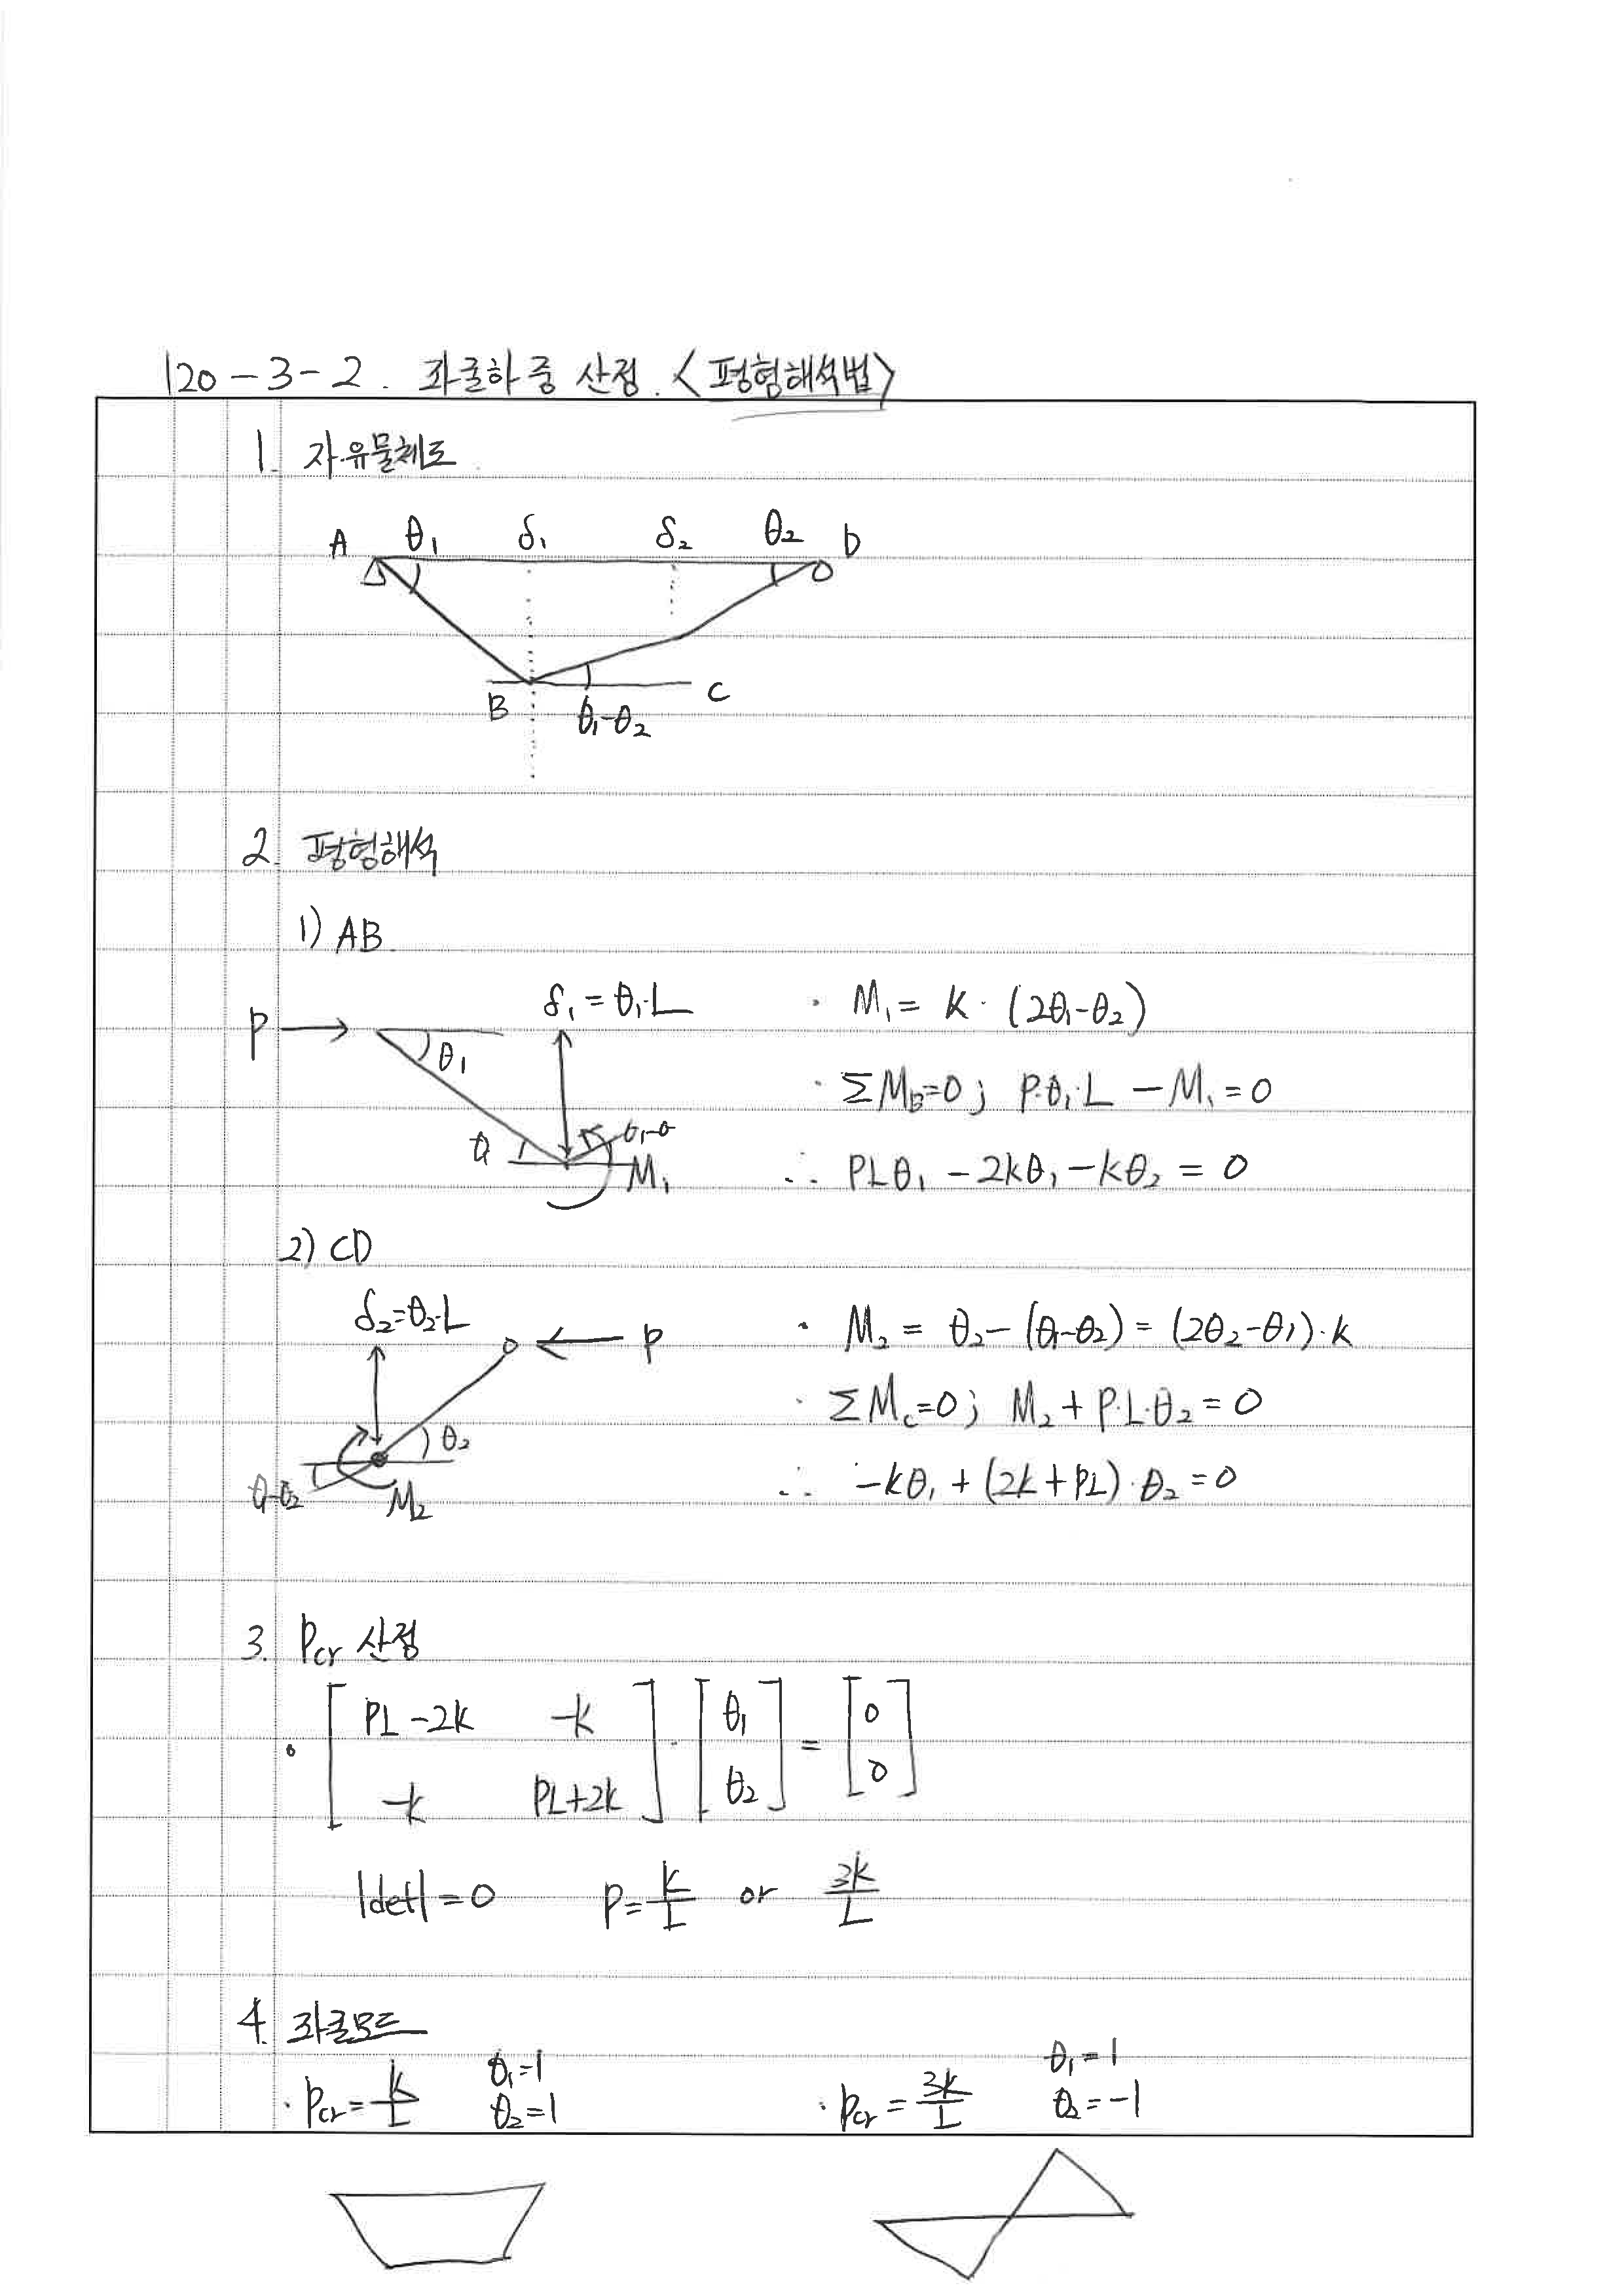 120-3-2. 좌굴하중 산정. <평형해석법>
1. 자유물체도
A θ₁ δ₁ δ₂ θ₂ D
B θ₁-θ₂ C
2. 평형해석
1) AB.
P θ₁ δ₁ = θ₁·L
θ₁ θ₁-θ M₁
· M₁ = K · (2θ₁-θ₂)
· ΣM_B=0; P·θ₁·L - M₁ = 0
∴ PLθ₁ - 2kθ₁ - kθ₂ = 0
2) CD
δ₂=θ₂·L P
θ₂
θ₁-θ₂ M₂
· M₂ = θ₂-(θ₁-θ₂) = (2θ₂-θ₁)·k
· ΣM_c=0; M₂ + P·L·θ₂ = 0
∴ -kθ₁ + (2k+PL)·θ₂ = 0
3. Pcr 산정
· [PL-2K -k] · [θ₁] = [0]
[-k PL+2k] [θ₂] [0]
|det| = 0 P = k/L or 3k/L
4. 좌굴모드
· Pcr = k/L θ₁=1 θ₂=1
· Pcr = 3k/L θ₁=1 θ₂=-1